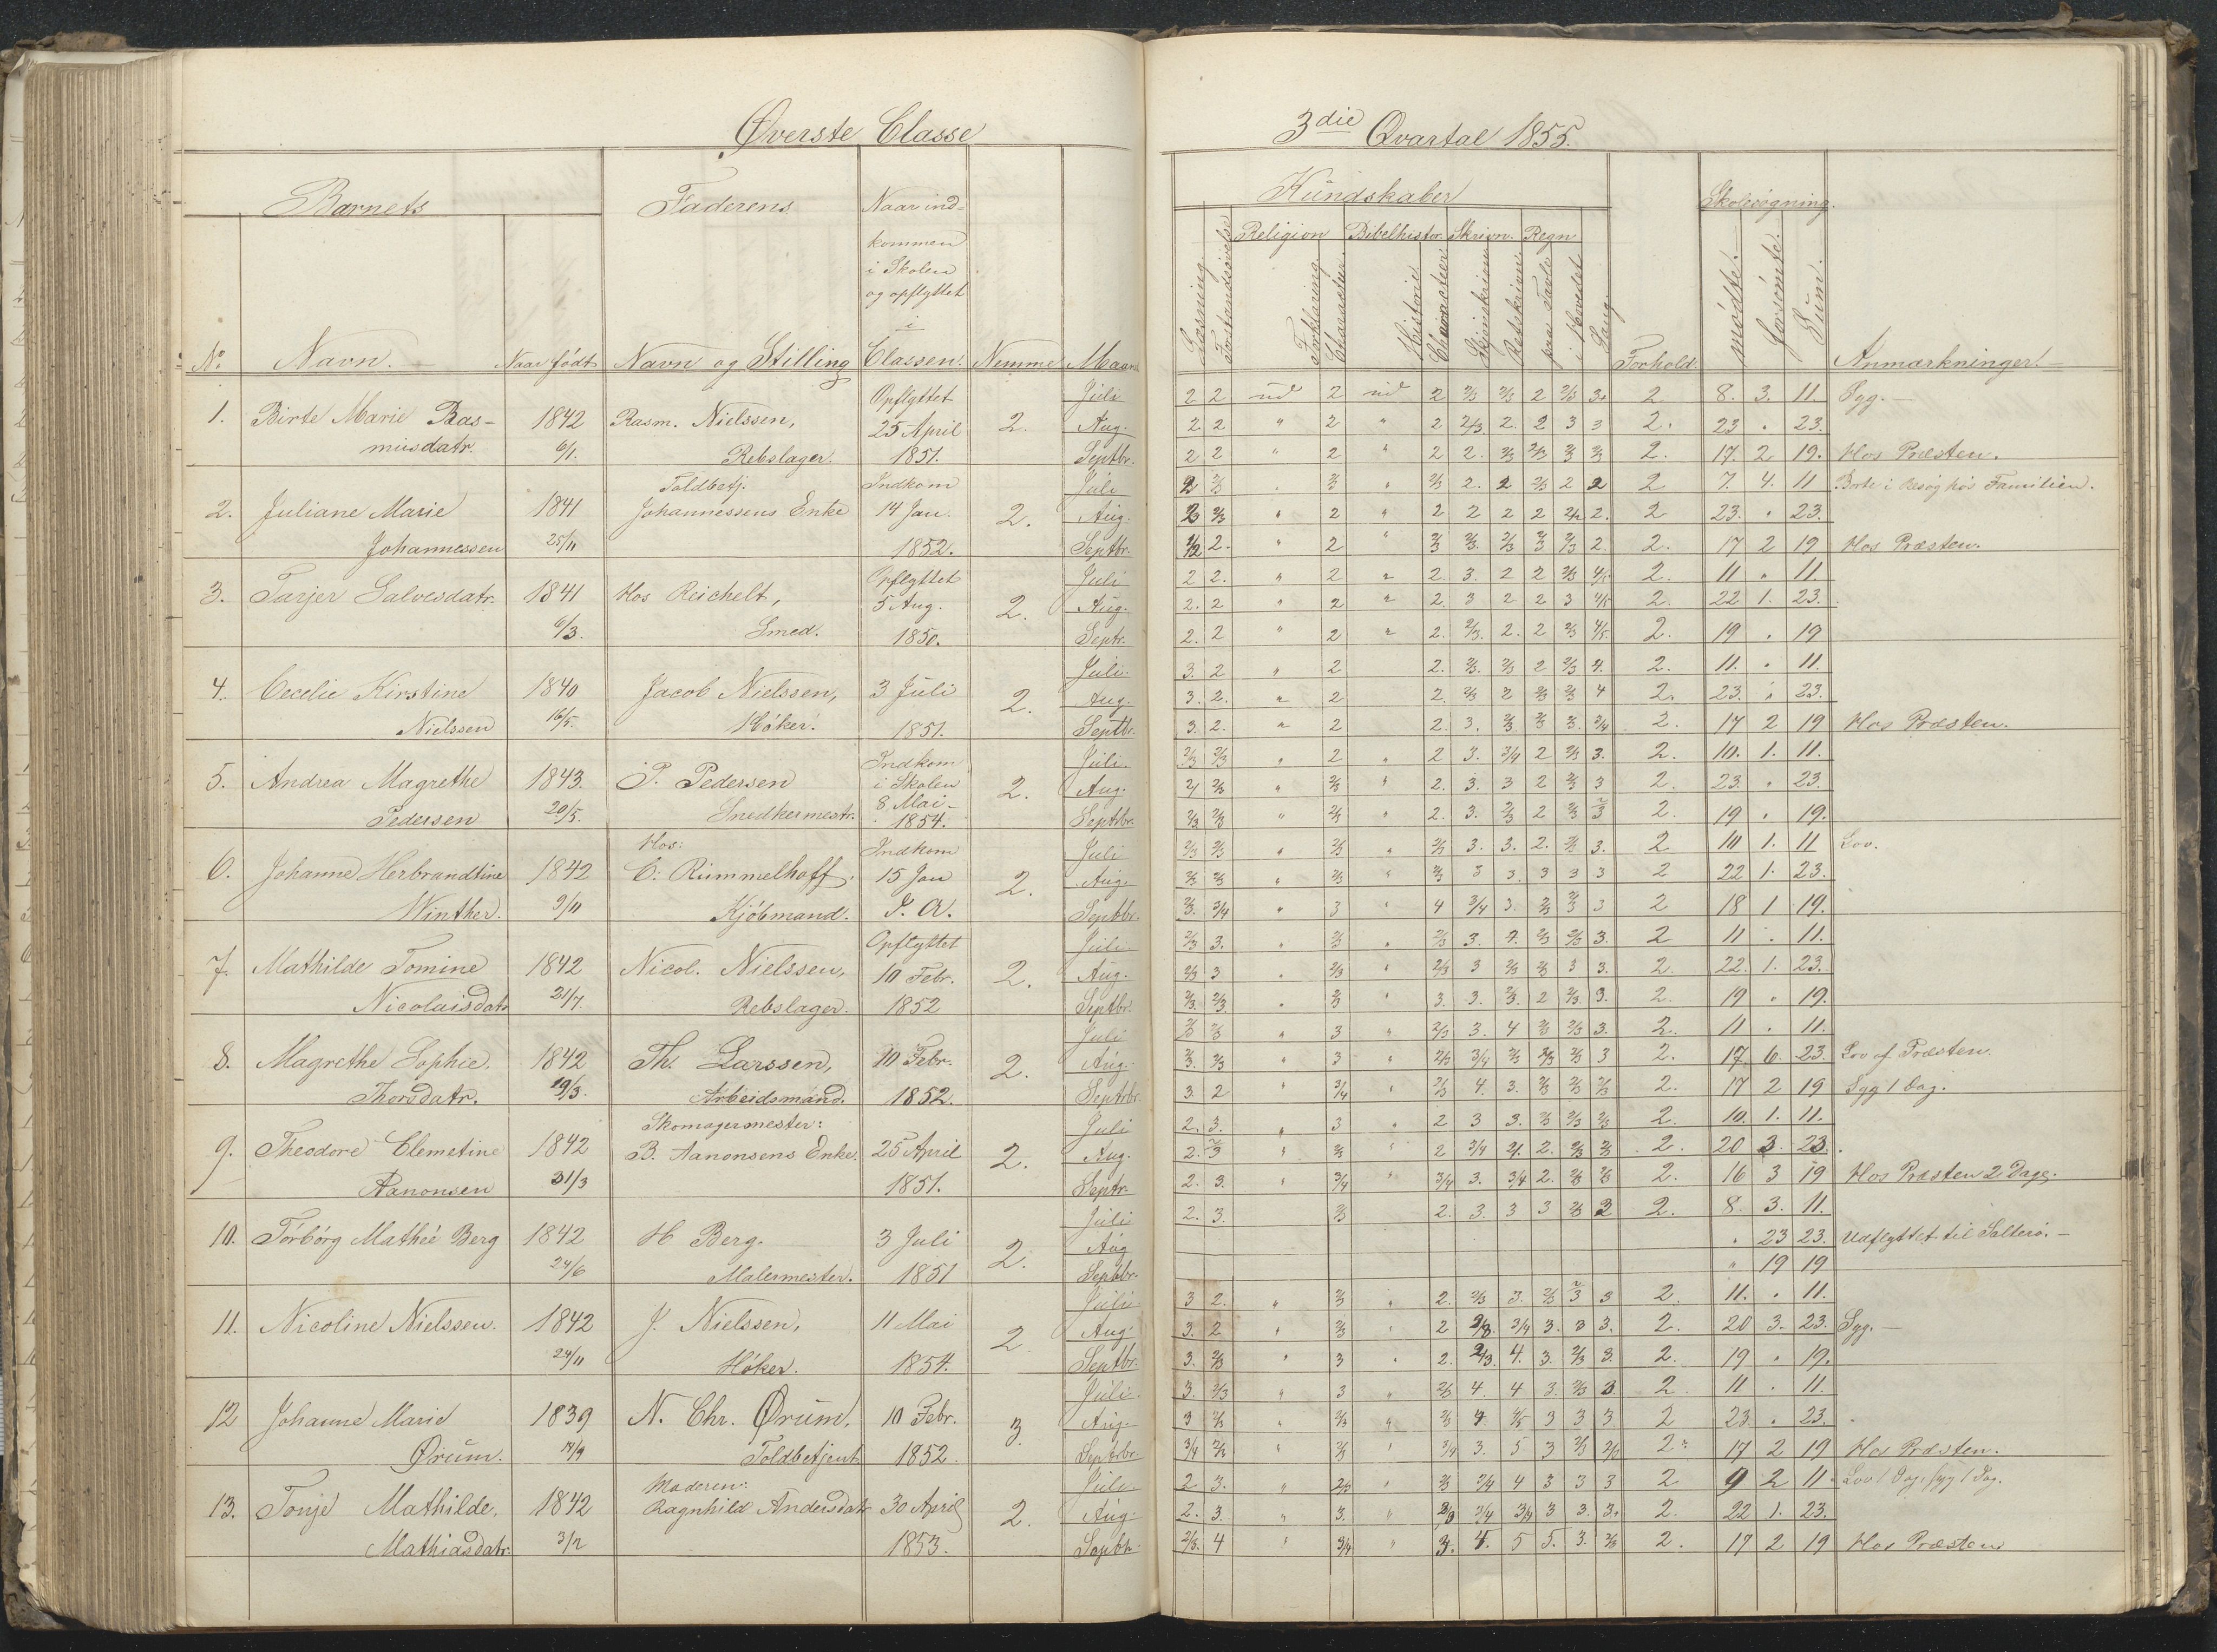 Øverste Classe
3die Qvartal 1855.
Barnets
Faderens
Naar ind-
kommen
i Skolen
og opflyttet
i
Classen.
No
Navn.
Naar født
Navn og Stilling
Nemme
Maan
Kundskaber
Religion Bibelhistor. Skrivn. Regn
Læsning
Forstandsøvelse
Forklaring
Charakter
Historie
Character
Skjønskriven
Retskrivn.
paa Tavle
i Hovedet
Sang
Forhold.
Skolesøgning.
mødte.
forsømte.
Sum.
Anmærkninger.
1. Birte Marie Ras- 1842 Rasm. Nielssen, Opflyttet 25 April 2.
musdatr. 6/1. Rebslager. 1851.
Juli 2 2 ud 2 ud 2 2/3 2/3 2 2/3 3. 2 8. 3. 11 Syg.
Aug. 2 2 " 2 " 2 2/3. 2. 2 3 3 2. 23 " 23.
Septbr. 2 2 " 2 " 2 2. 2/3 2/3 2/3 2/3 2. 17. 2 19. Hos Præsten.
2. Juliane Marie 1841 Toldbetj. Johannessens Enke Indkom 14 Jan. 2.
Johannessen 25/11 1852.
Juli 2 2/3 " 2/3 " 2/3 2. 2 2/3 2 2 2 7. 4. 11 Borte i Besøg hos Familien.
Aug. 2 2/3 " 2 " 2 2 2 2 2/1 2. 2 23. " 23.
Septbr. 1/2 2. " 2 " 2/3 2/3. 2/3 2/3 2/3 2. 2. 17 2 19 Hos Præsten.
3. Tarjer Salvesdatr. 1841 Hos Reichelt, Opflyttet 5 Aug. 2.
6/3. Smed. 1850.
Juli 2 2. " 2 " 2. 3. 2 2 2/3 4/5 2. 11 " 11.
Aug. 2. 2 " 2 " 2. 3 2 2 3 4/5 2. 22 1. 23.
Septr. 2. 2 " 2 " 2. 2/3. 2. 2 2/3 4/5. 2. 19 " 19
4. Cecelie Kirstine 1840 Jacob Nielssen, 3 Juli 2.
Nielssen 16/5. Høker. 1851.
Juli. 3. 2 " 2 2. 2/3. 2/3 2 2/3 4. 2. 11. " 11.
Aug. 3. 2. " 2 2. 2/3 2 2/3 2/3 4 2. 23. " 23.
Septbr. 3. 2. " 2 2. 3. 2/3. 2/3 2/3. 3/4 2. 17 2 19 Hos Præsten.
5. Andrea Magrethe 1843. P. Pedersen Indkom i Skolen 2.
Pedersen 20/5. Snedkermestr. 8 Mai 1854.
Juli. 2/3 2/3 " 2 " 2 3. 3/4 2 2/3 3. 2. 10. 1. 11.
Aug. 2/1 2/3 " 2/3 " 2. 3. 3 2 2/3 3 2. 23. " 23.
Septbr. 2/3 2/3 " 2/3 " 2. 3. 2/3 2 2/3 2/3 2. 19 " 19.
6. Johanne Herbrandtine 1842 Hos: C. Rummelhoff. Indkom 15 Jan 2.
Winther. 9/11 Kjøbmand. I. A.
Juli 2/3 2/3 " 2/3 " 2/3 3. 3. 2. 2/3 3. 2 10 1. 11 Lov.
Aug. 2/3 2/3 " 2/3 " 2/3 3 3. 3 3 3 2 22 1. 23.
Septbr. 2/3. 3/4 " 3 " 4 3/4 3. 2/3 2/3 3 2 18 1 19.
7. Mathilde Tomine 1842 Nicol. Nielssen, Opflyttet 10 Febr. 2.
Nicolaisdatr 21/7. Rebslager. 1852
Juli 2/3 3. " 2/3 " 2/3 3. 4. 2/3 2/3 3. 2 11 " 11.
Aug. 2/3 3 " 2/3 " 2/3 3 2/3 2/3 3 3. 2. 22. 1. 23.
Septbr. 2/3. 2/3. " 2/3 " 3. 3. 2/3. 2 2/3. 3. 2. 19 " 19.
8. Magrethe Sophie. 1842 Th. Larssen, 10 Febr. 2.
Thorsdatr. 19/3. Arbeidsmand. 1852.
Juli 2/3 2/3 " 3 " 2/3 3. 4 2/3 2/3 3. 2. 11 " 11.
Aug. 2/3. 2/3 " 3 " 2/3 3/4 2/3 2/3 2/3 3 2. 17. 6. 23. Lov af Præsten.
Septbr. 3. 2 " 3/4 " 2/3 4. 3. 2/3 2/3 2/3 2. 17 2 19 Syg 1 Dag.
9. Theodore Clemetine 1842 Skomagermester: B. Aanonsens Enke. 25 April 2.
Aanonsen 31/3 1851.
Juli 2. 3. " 3 " 2 3 3. 2/3 2/3 2/3 2. 10. 1. 11.
Aug. 2. 2/3 " 2/3 " 2 3/4 2/1. 2. 2/3 2/3 2. 20 3. 23.
Septr. 2. 3. " 3/4 " 3/4 3. 3/4 2. 2/3 2/3 2. 16 3 19 Hos Præsten 2 Dage.
10. Torborg Mathée Berg 1842 H Berg. 3 Juli 2.
24/6 Malermester. 1851
Juli 2. 3. 2/3 2. 3. 3 3 2/3 2 2. 8. 3. 11.
Aug " 23 23. Udflyttet til Salterö.
Septbr. " 19 19
11. Nicoline Nielssen. 1842 J. Nielssen, 11 Mai 2.
24/11 Høker. 1854.
Juli. 3 2. " 2/3 " 2. 2/3 3. 2/3 2/3 3 2. 11. " 11.
Aug. 3. 2 " 2/3 " 2 2/3. 3/4 3. 3 3. 2. 20 3. 23. Syg.
Septbr. 3. 2/3 " 3 " 2. 2/3. 4. 3. 2/3 3. 2. 19 " 19.
12 Johanne Marie 1839 N. Chr. Ørum, 10 Febr. 3.
Ørum. 14/9 Toldbetjent 1852.
Juli. 3. 2/3 " 3 " 2/3 4. 4 3. 2/3 3. 2 11 " 11.
Aug. 3 2/3 " 2/3 " 2/3 4. 4/5 3 3 3 2 23. " 23.
Septbr. 3/4 2/3 " 2/3 " 3/4 3. 5 3 2/3 2/3 2. 17 2 19 Hos Præsten.
13. Tonje Mathilde, 1842 Moderen: Ragnhild Andersdatr 30 April 2.
Mathiasdatr. 3/2 1853.
Juli 2 3. " 2/3 " 2/3 3/4 4 3 3 3 2 9 2 11 Lov 1 Dag, syg 1 Dag.
Aug. 2. 3. " 3. " 2/3 3/4 3/4 3 3. 3. 2. 22 1. 23.
Septbr. 2/3. 4 " 3/4 " 3. 4. 5 5. 3. 2/3 2. 17 2 19 Hos Præsten